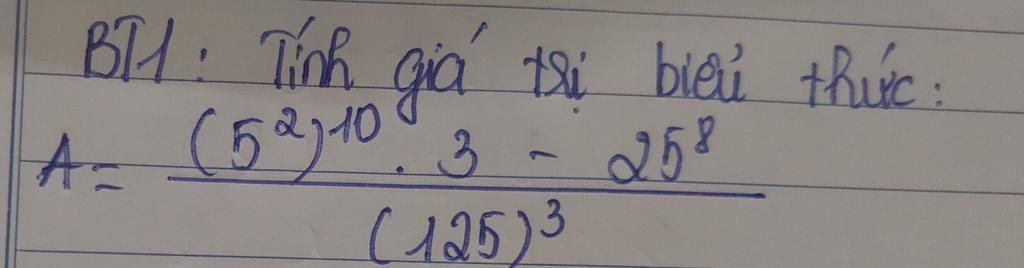 BT1: Tính giá trị biểu thức:
A = \frac{(5^2)^{10} . 3 - 25^8}{(125)^3}